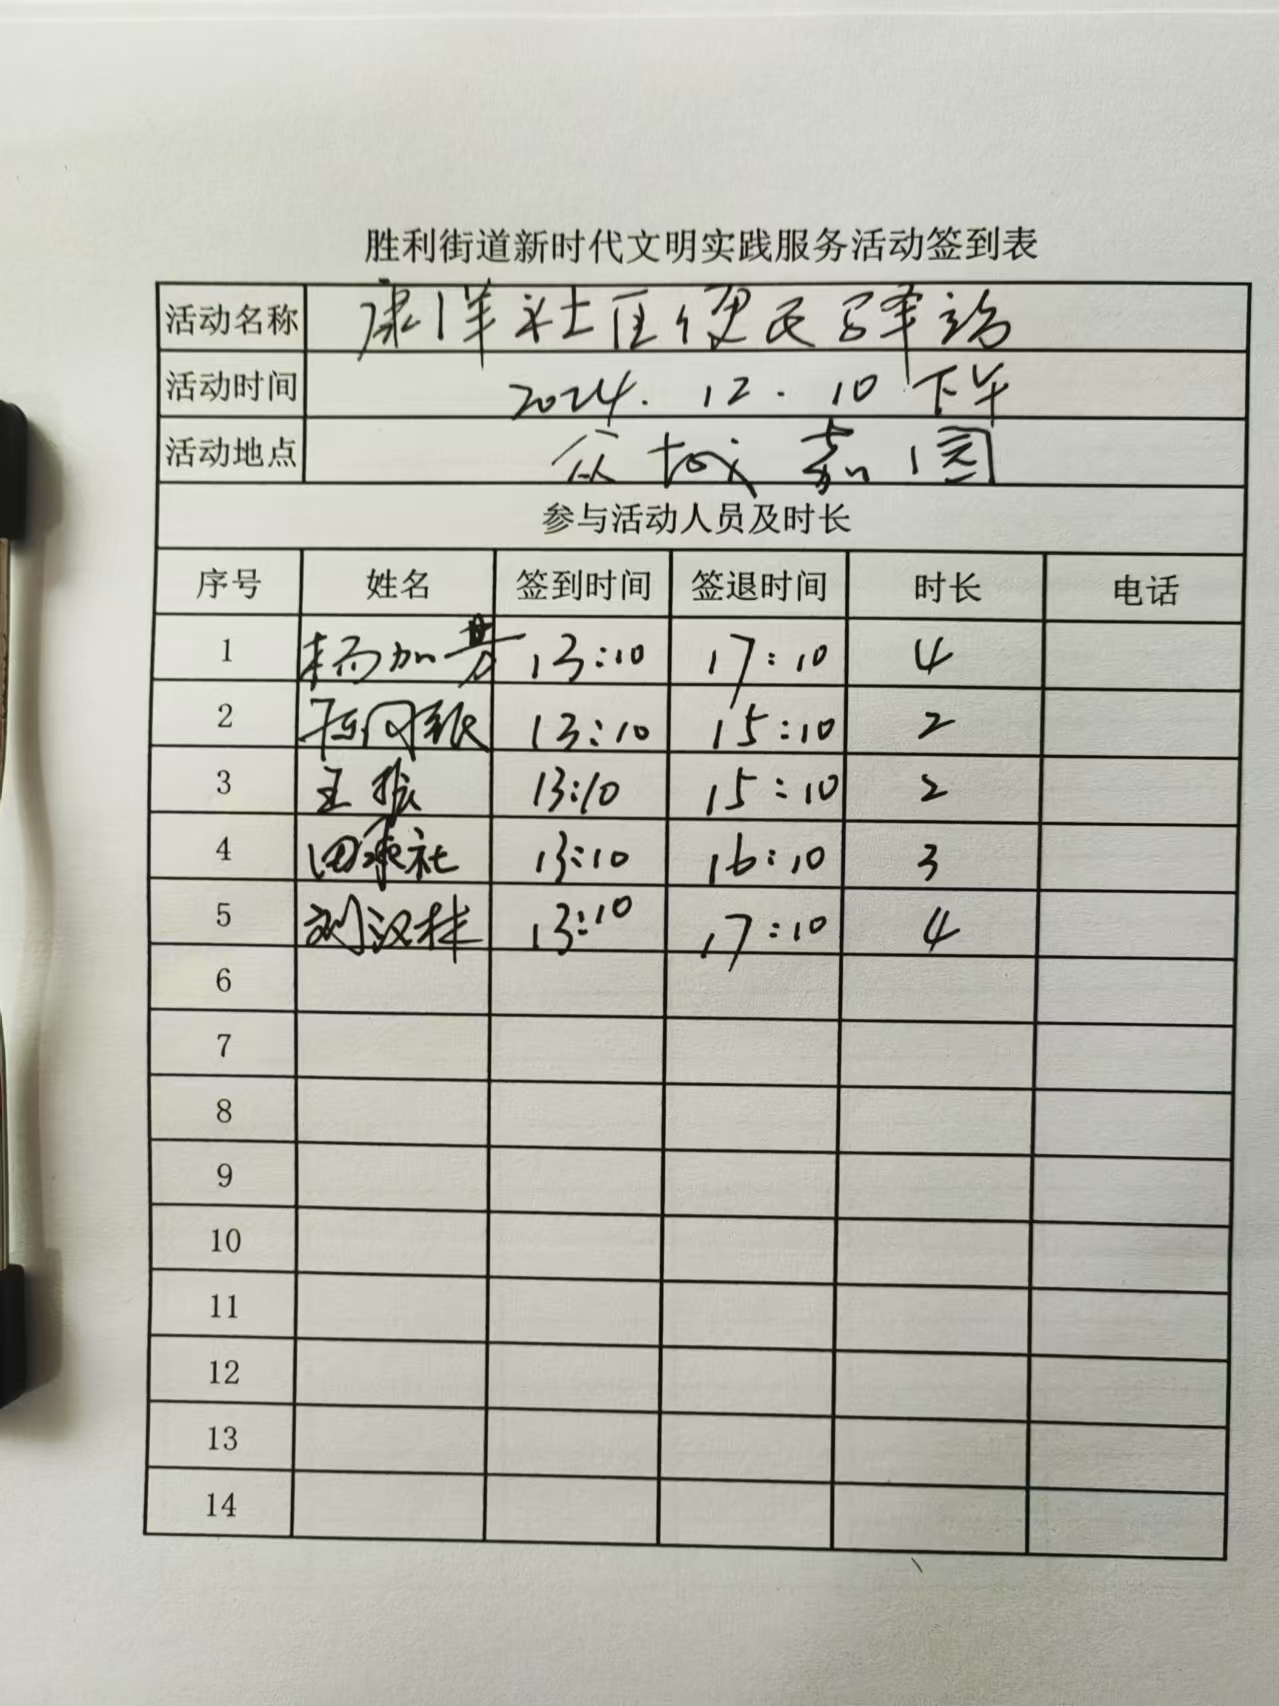 胜利街道新时代文明实践服务活动签到表
活动名称 康洋社区便民驿站
活动时间 2024.12.10下午
活动地点 众城嘉园
参与活动人员及时长
序号 姓名 签到时间 签退时间 时长 电话
1 杨加 13:10 17:10 4
2 13:10 15:10 2
3 王振 13:10 15:10 2
4 田承社 13:10 16:10 3
5 刘汉林 13:10 17:10 4
6
7
8
9
10
11
12
13
14